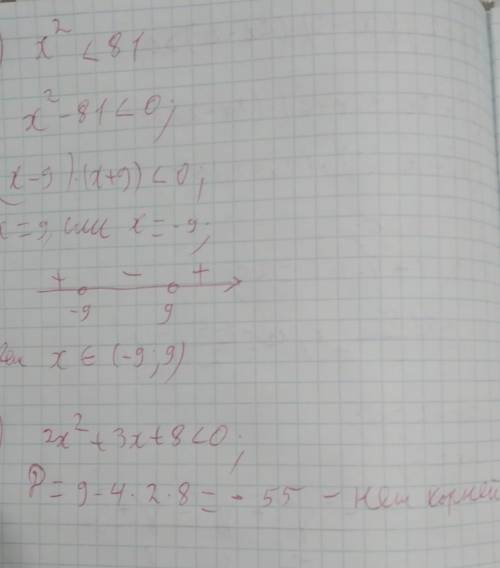 ) x² < 81
x² - 81 < 0;
(x-9)·(x+9) < 0;
x = 9, или x = -9;
+ - +
-9 9
x ∈ (-9; 9)
) 2x² + 3x + 8 < 0;
D = 9 - 4·2·8 = - 55 - нет корней